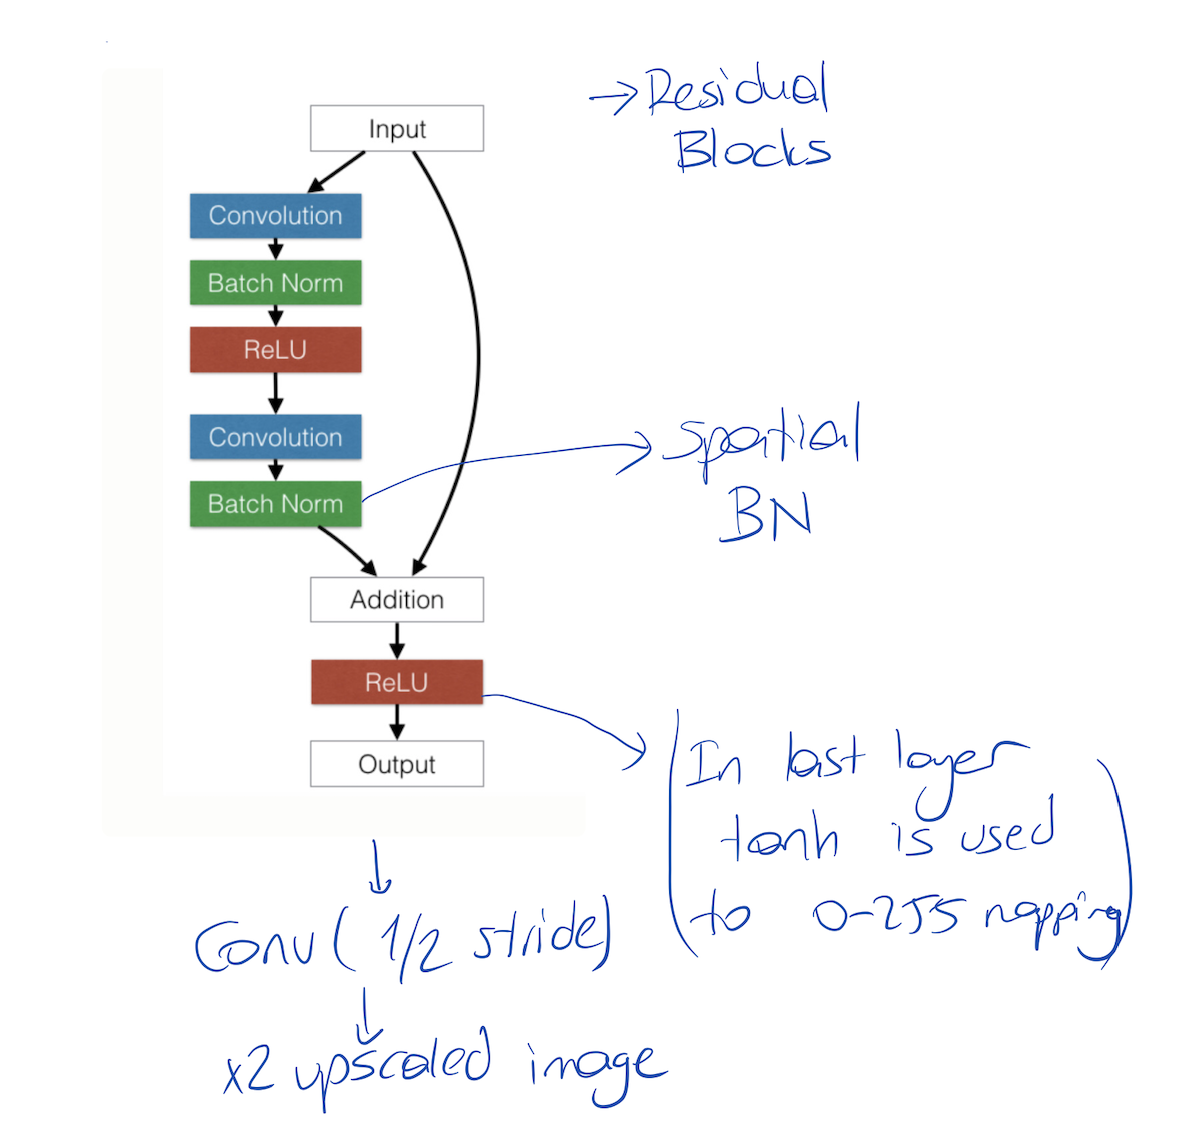 →Residual
Blocks
Input
Convolution
Batch Norm
ReLU
Convolution
Batch Norm
Spatial
BN
Addition
ReLU
Output
(In last layer
tanh is used
to 0-255 mapping)
Conv(1/2 stride)
x2 upscaled image